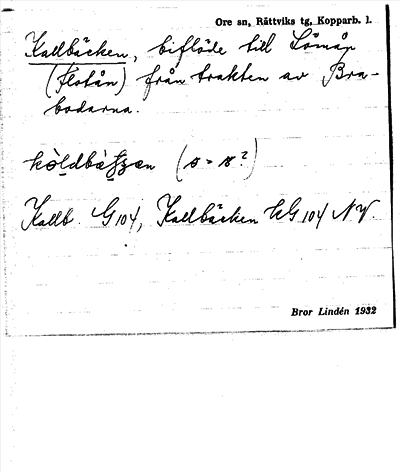 Ore sn, Rättviks tg, Kopparb. l.
Kallbäcken, biflöde till Lömån
(Flotån) från trakten av Bra-
bodarna.
Kallb. G 104, Kallbäcken kG 104 NV.
Bror Lindén 1932